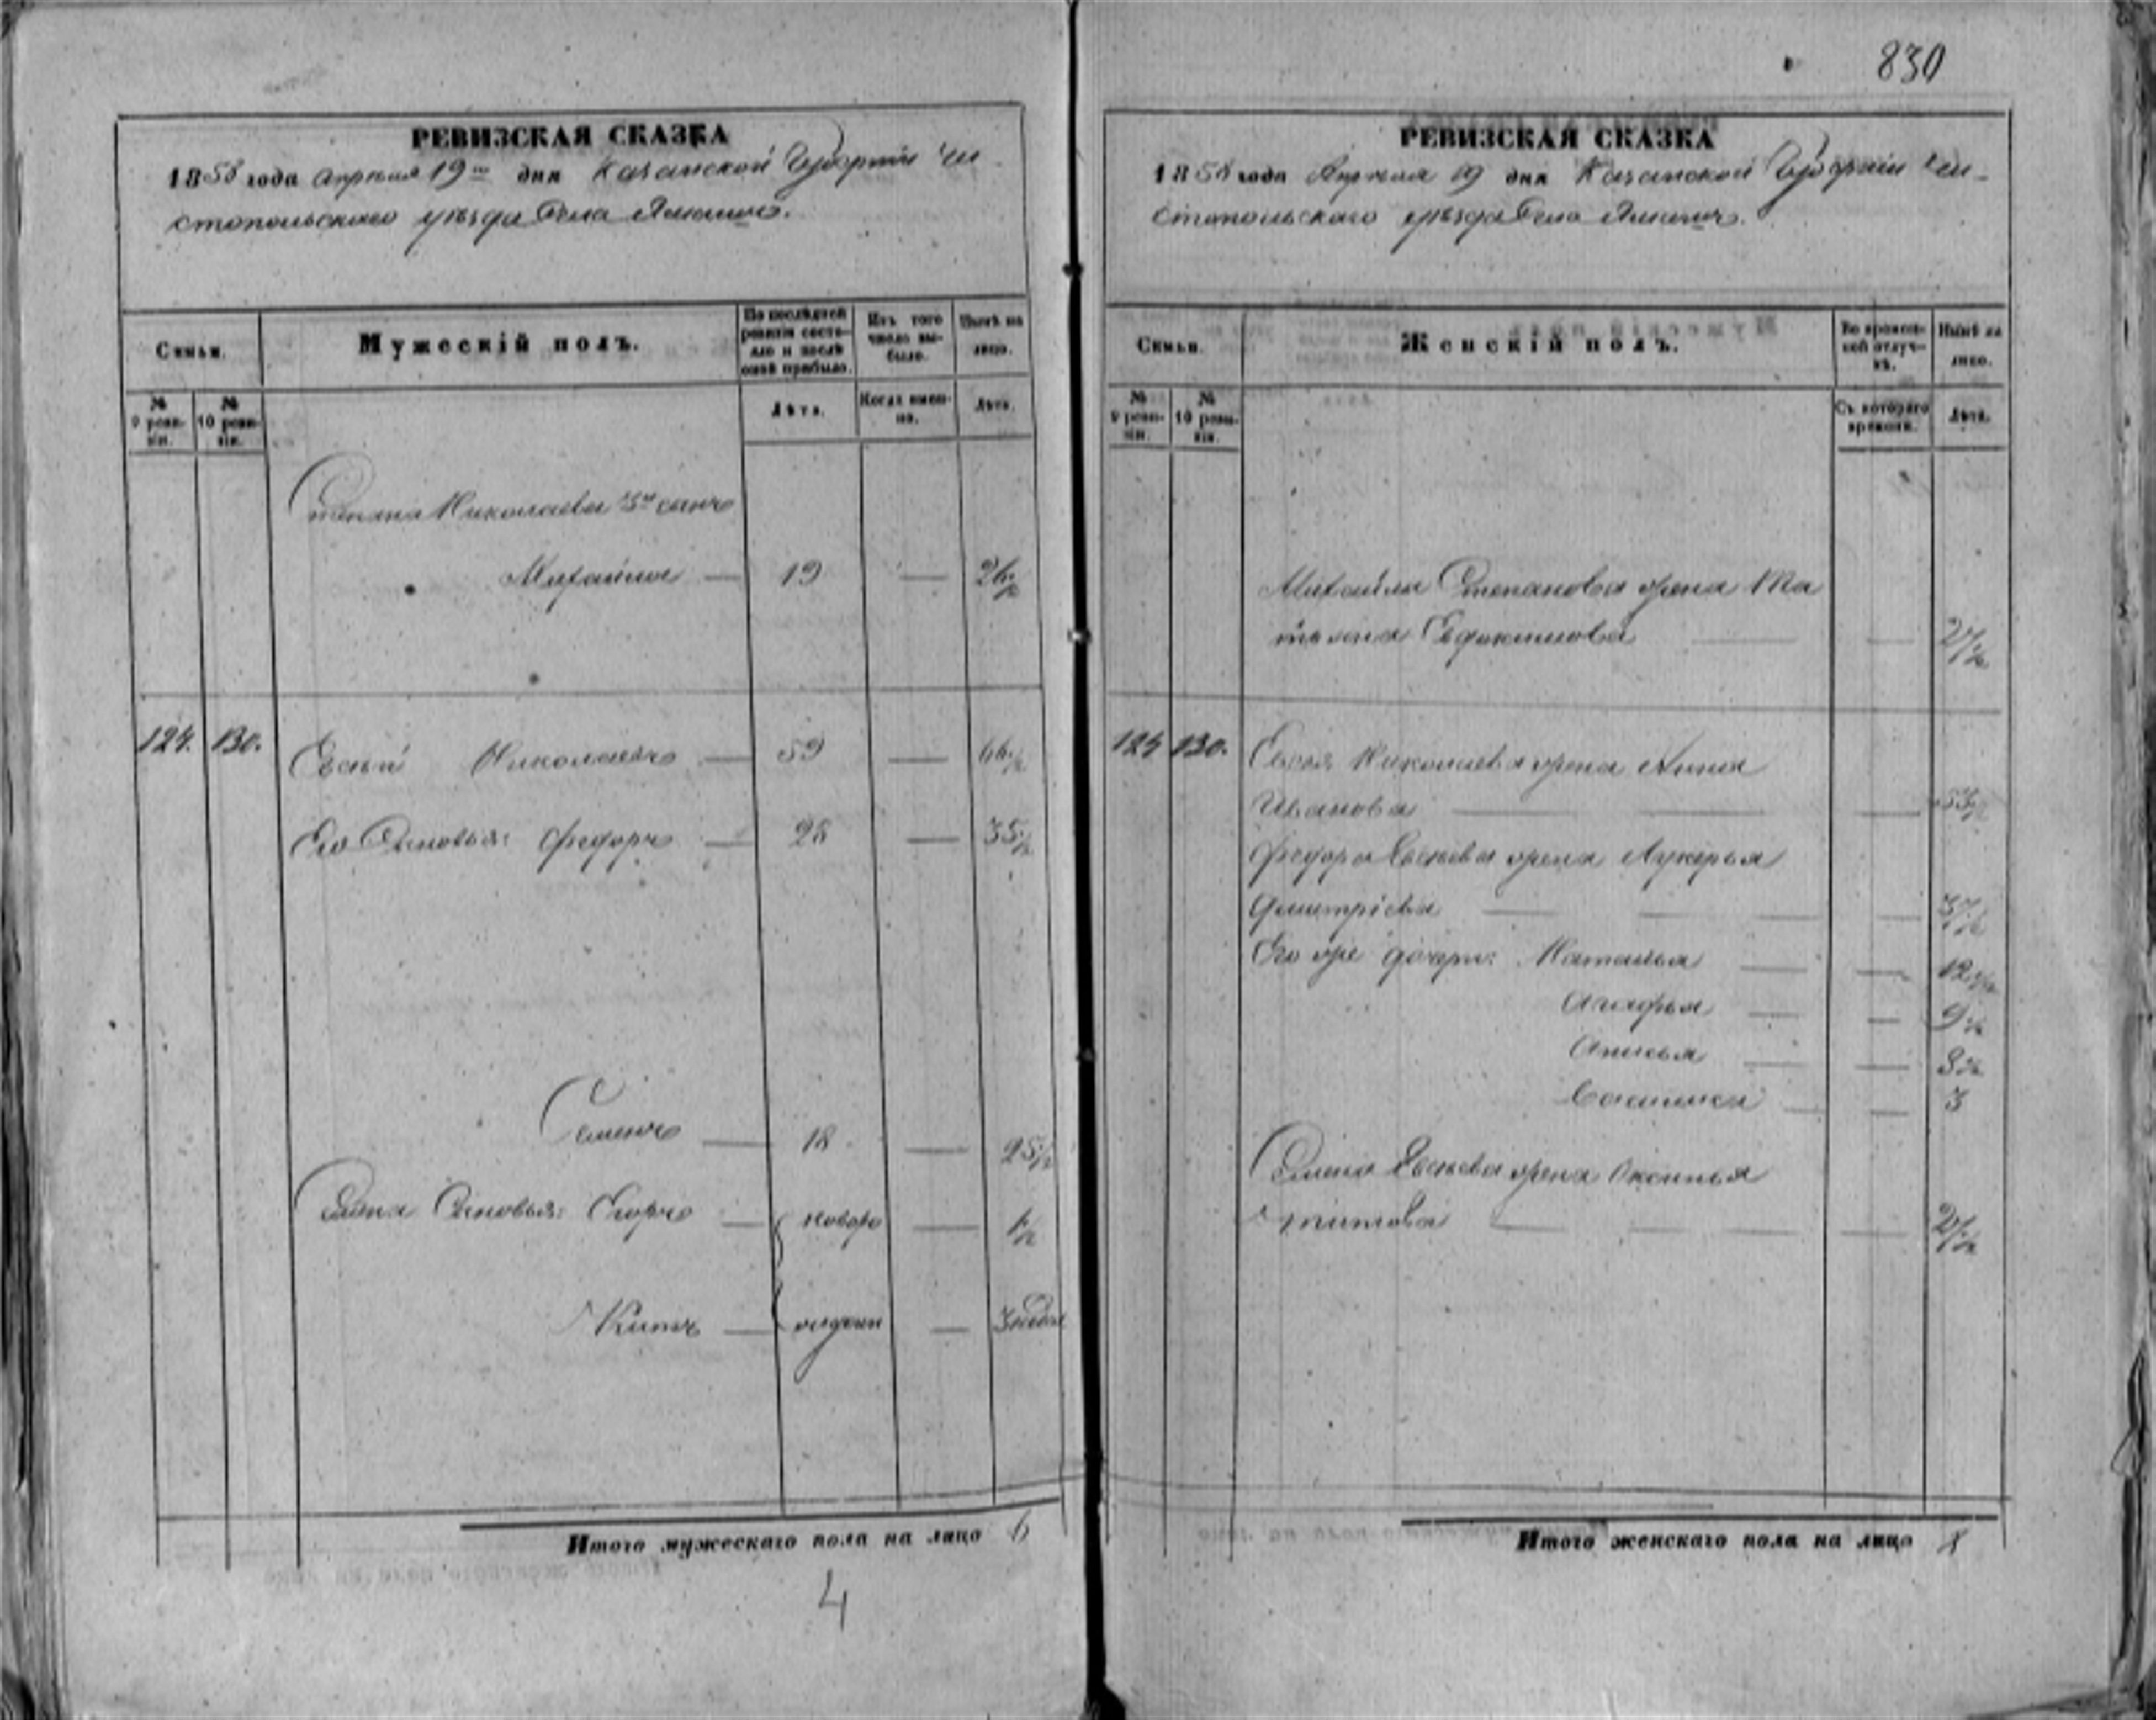 830
РЕВИЗСКАЯ СКАЗКА
1858 года апреля 19го дня Казанской Губернии Чи-
стопольского уезда Села
Семьи.
Мужескій полъ.
По послѣдней ревизіи состояло и послѣ оной прибыло.
Изъ того числа выбыло.
Нынѣ на лицо.
№ 9 ревизіи.
№ 10 ревизіи.
Лѣта.
Когда именно.
Лѣта.
Степана Николаева 3й сынъ
Михайло — 19 — 26 1/2
124. 130. Евсей Николаевъ — 59 — 66 1/2
Его Сыновья: Федоръ — 28 — 35 1/2
Семенъ — 18 — 25 1/2
Семена Сыновья: Егоръ — новоро — 1/2
Китъ — жденн — 3 недели
Итого мужескаго пола на лицо 6
4
РЕВИЗСКАЯ СКАЗКА
1858 года Апреля 19 дня Казанской Губернии Чи-
стопольского уезда Села
Семьи.
Женскій полъ.
Во временной отлучкѣ.
Нынѣ на лицо.
№ 9 ревизіи.
№ 10 ревизіи.
Съ котораго времени.
Лѣта.
Михайлы Степанова жена Та
тьяна Евдокимова — —
124 130. Евсея Николаева жена Анна
Иванова — — 53 1/2
Федора Евсеева жена Лукерья
Дмитріева — — 37 1/2
Его же дочери: Наталья — — 12 1/2
Агафья — — 9 1/2
Анисья — — 8 1/2
— — 3
Семена Евсеева жена Оксинья
Титова — —
Итого женскаго пола на лицо 8